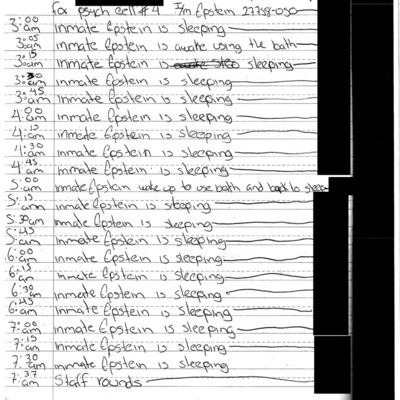 for psych cell #4 I/m Epstein
3:00 am Inmate Epstein is sleeping
3:05 am inmate Epstein is awake using the bath
3:15 am inmate Epstein is sleeping
3:30 am inmate Epstein is sleeping
3:45 am inmate Epstein is sleeping
4:00 am inmate Epstein is sleeping
4:15 am inmate Epstein is sleeping
4:30 am inmate Epstein is sleeping
4:45 am inmate Epstein is sleeping
5:00 am inmate Epstein woke up to use bath and back to sleep
5:15 am inmate Epstein is sleeping
5:30 am inmate Epstein is sleeping
5:45 am inmate Epstein is sleeping
6:00 am inmate Epstein is sleeping
6:15 am inmate Epstein is sleeping
6:30 am inmate Epstein is sleeping
6:45 am inmate Epstein is sleeping
7:00 am inmate Epstein is sleeping
7:15 am inmate Epstein is sleeping
7:30 am inmate Epstein is sleeping
7:37 am Staff rounds